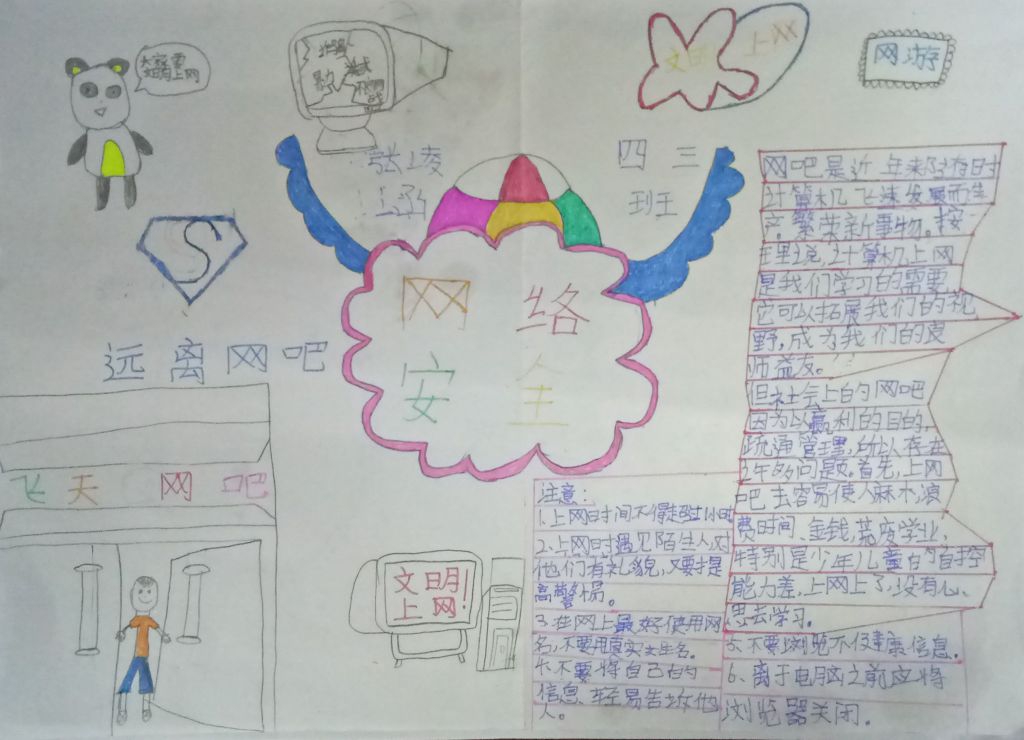 大家要
文明上网
文明
上网
网游
四三
班
S
网络
安全
远离网吧
飞天网吧
文明
上网!
网吧是近年来随存时
计算机飞速发展而生
产,繁荣新事物。按
理说,计算机上网
是我们学习的需要,
它可以拓展我们的视
野,成为我们的良
师益友。
但社会上的网吧
因为以赢利的目的,
疏通管理,所以存在
许多问题。首先,上网
吧去容易使人麻木浪
费时间、金钱,荒废学业,
特别是少年儿童的自控
能力差,上网上了,没有心
思去学习。
注意:
1.上网时间不得超过1小时
2.上网时遇见陌生人对
他们有礼貌,又要提
高警惕。
3.在网上最好使用网
名,不要用真实姓名。
4.不要将自己的
信息轻易告诉他
人。
5、不要浏览不健康信息。
6、离于电脑之前应将
浏览器关闭。